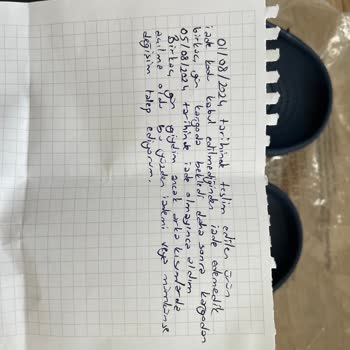 01/08/2024 tarihinde teslim edilen ürün
iade kodu kabul edilmediğinden iade edemedik
birkaç gün kargoda bekledi daha sonra kargodan
05/08/2024 tarihinde iade olmayınca aldım
Birkaç gün giydim ancak arka kısımlarda
açılma oldu bu yüzden iademi veya mümkünse
değişim talep ediyorum.